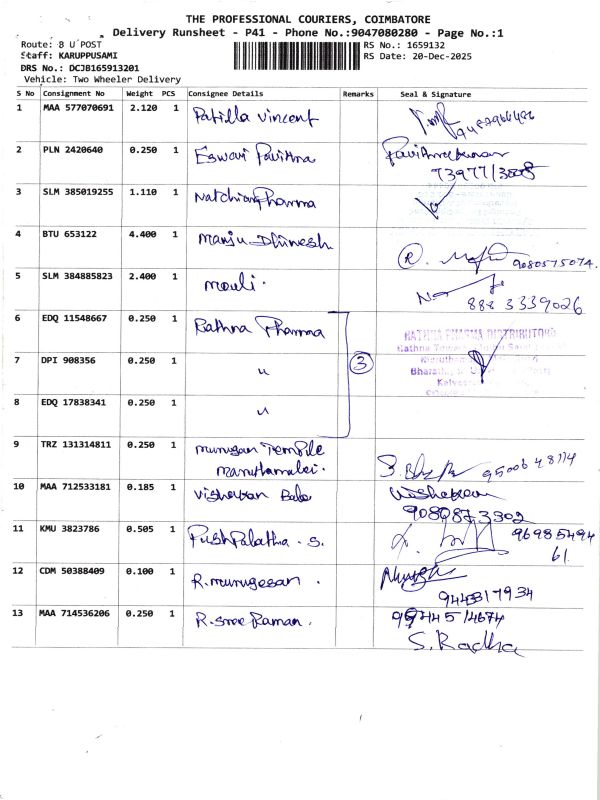 THE PROFESSIONAL COURIERS, COIMBATORE
Delivery Runsheet - P41 - Phone No.:9047080280 - Page No.:1
Route: 8 U POST
RS No.: 1659132
Staff: KARUPPUSAMI
RS Date: 20-Dec-2025
DRS No.: DCJB165913201
Vehicle: Two Wheeler Delivery
S No Consignment No Weight PCS Consignee Details Remarks Seal & Signature
1 MAA 577070691 2.120 1 Patilla Vincent
2 PLN 2420640 0.250 1 Eswari Pavithra
3 SLM 385019255 1.110 1 Natchiar Pharma
4 BTU 653122 4.400 1 Manju Dhinesh 9080575074.
5 SLM 384885823 2.400 1 Mouli. 888 3339026
6 EDQ 11548667 0.250 1 Rathna Pharma
RATHNA PHARMA DISTRIBUTORS
7 DPI 908356 0.250 1 " 3
8 EDQ 17838341 0.250 1 "
9 TRZ 131314811 0.250 1 Murugan Temple
Maruthamalai.
10 MAA 712533181 0.185 1 Vishagan Bala
9080873302
11 KMU 3823786 0.505 1 Pushpalatha . S. 96985494
61.
12 CDM 50388409 0.100 1 R. Murugesan .
9443317934
13 MAA 714536206 0.250 1 R. Sree Raman.
S. Radha